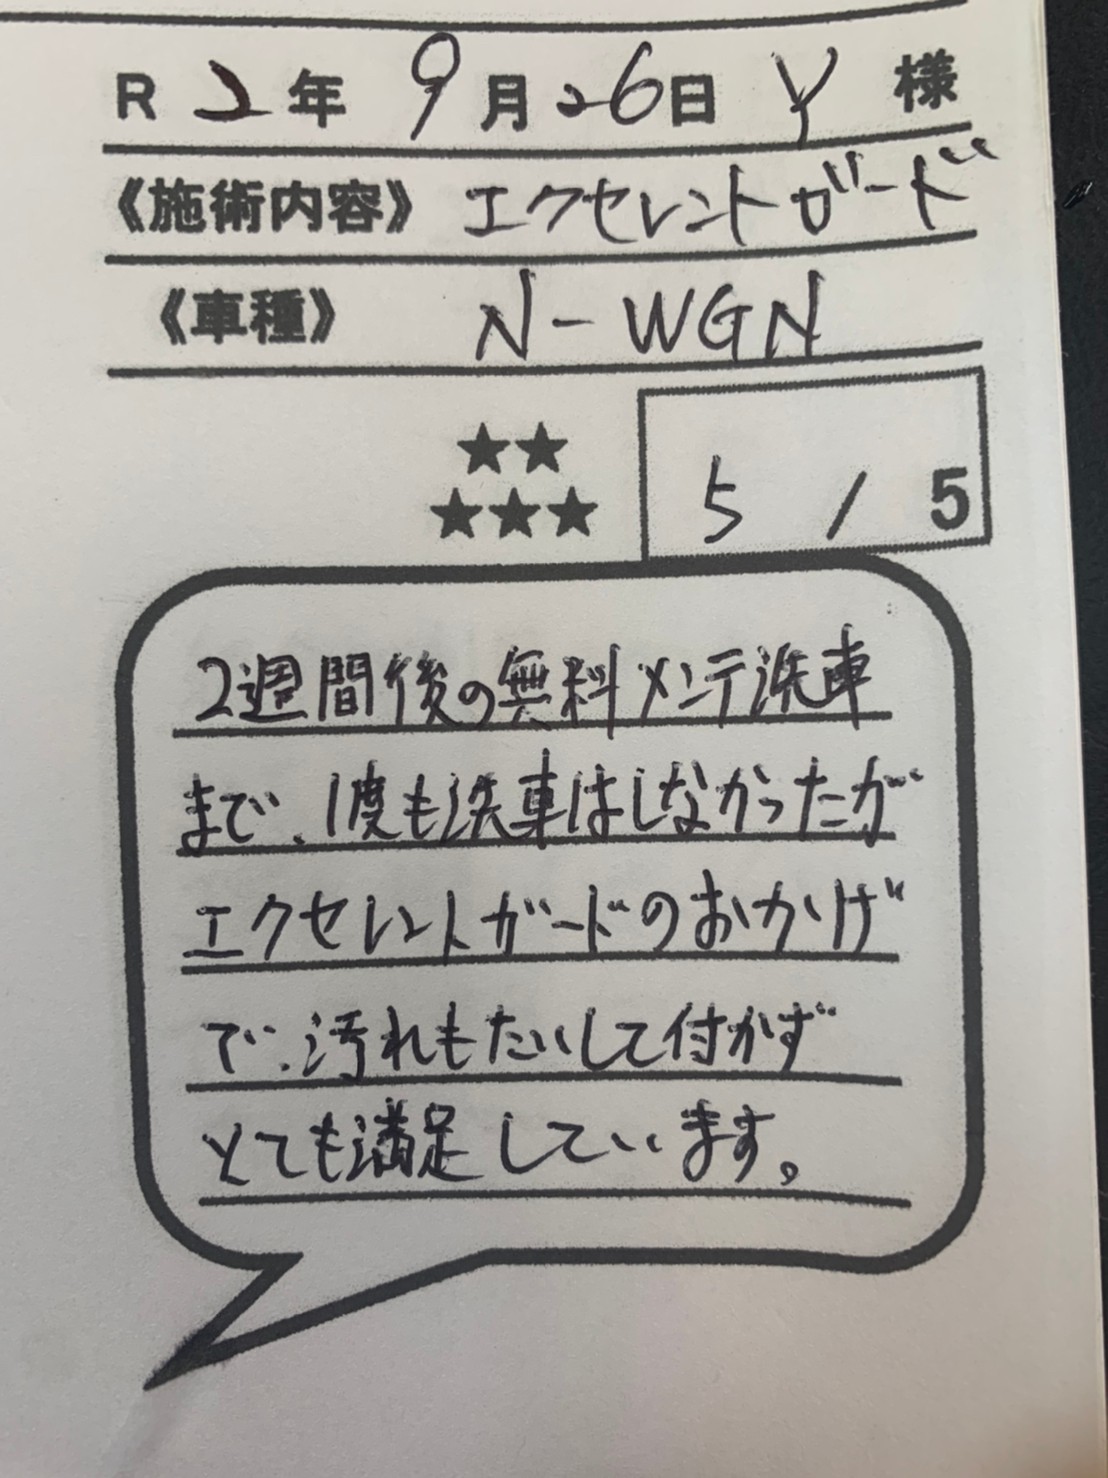 R 2年 9月26日 Y 様
《施術内容》 エクセレントガード
《車種》 N-WGN
★★
★★★ 5 / 5
2週間後の無料メンテ洗車
まで、1度も洗車はしなかったが
エクセレントガードのおかげ
で、汚れもたいして付かず
とても満足しています。